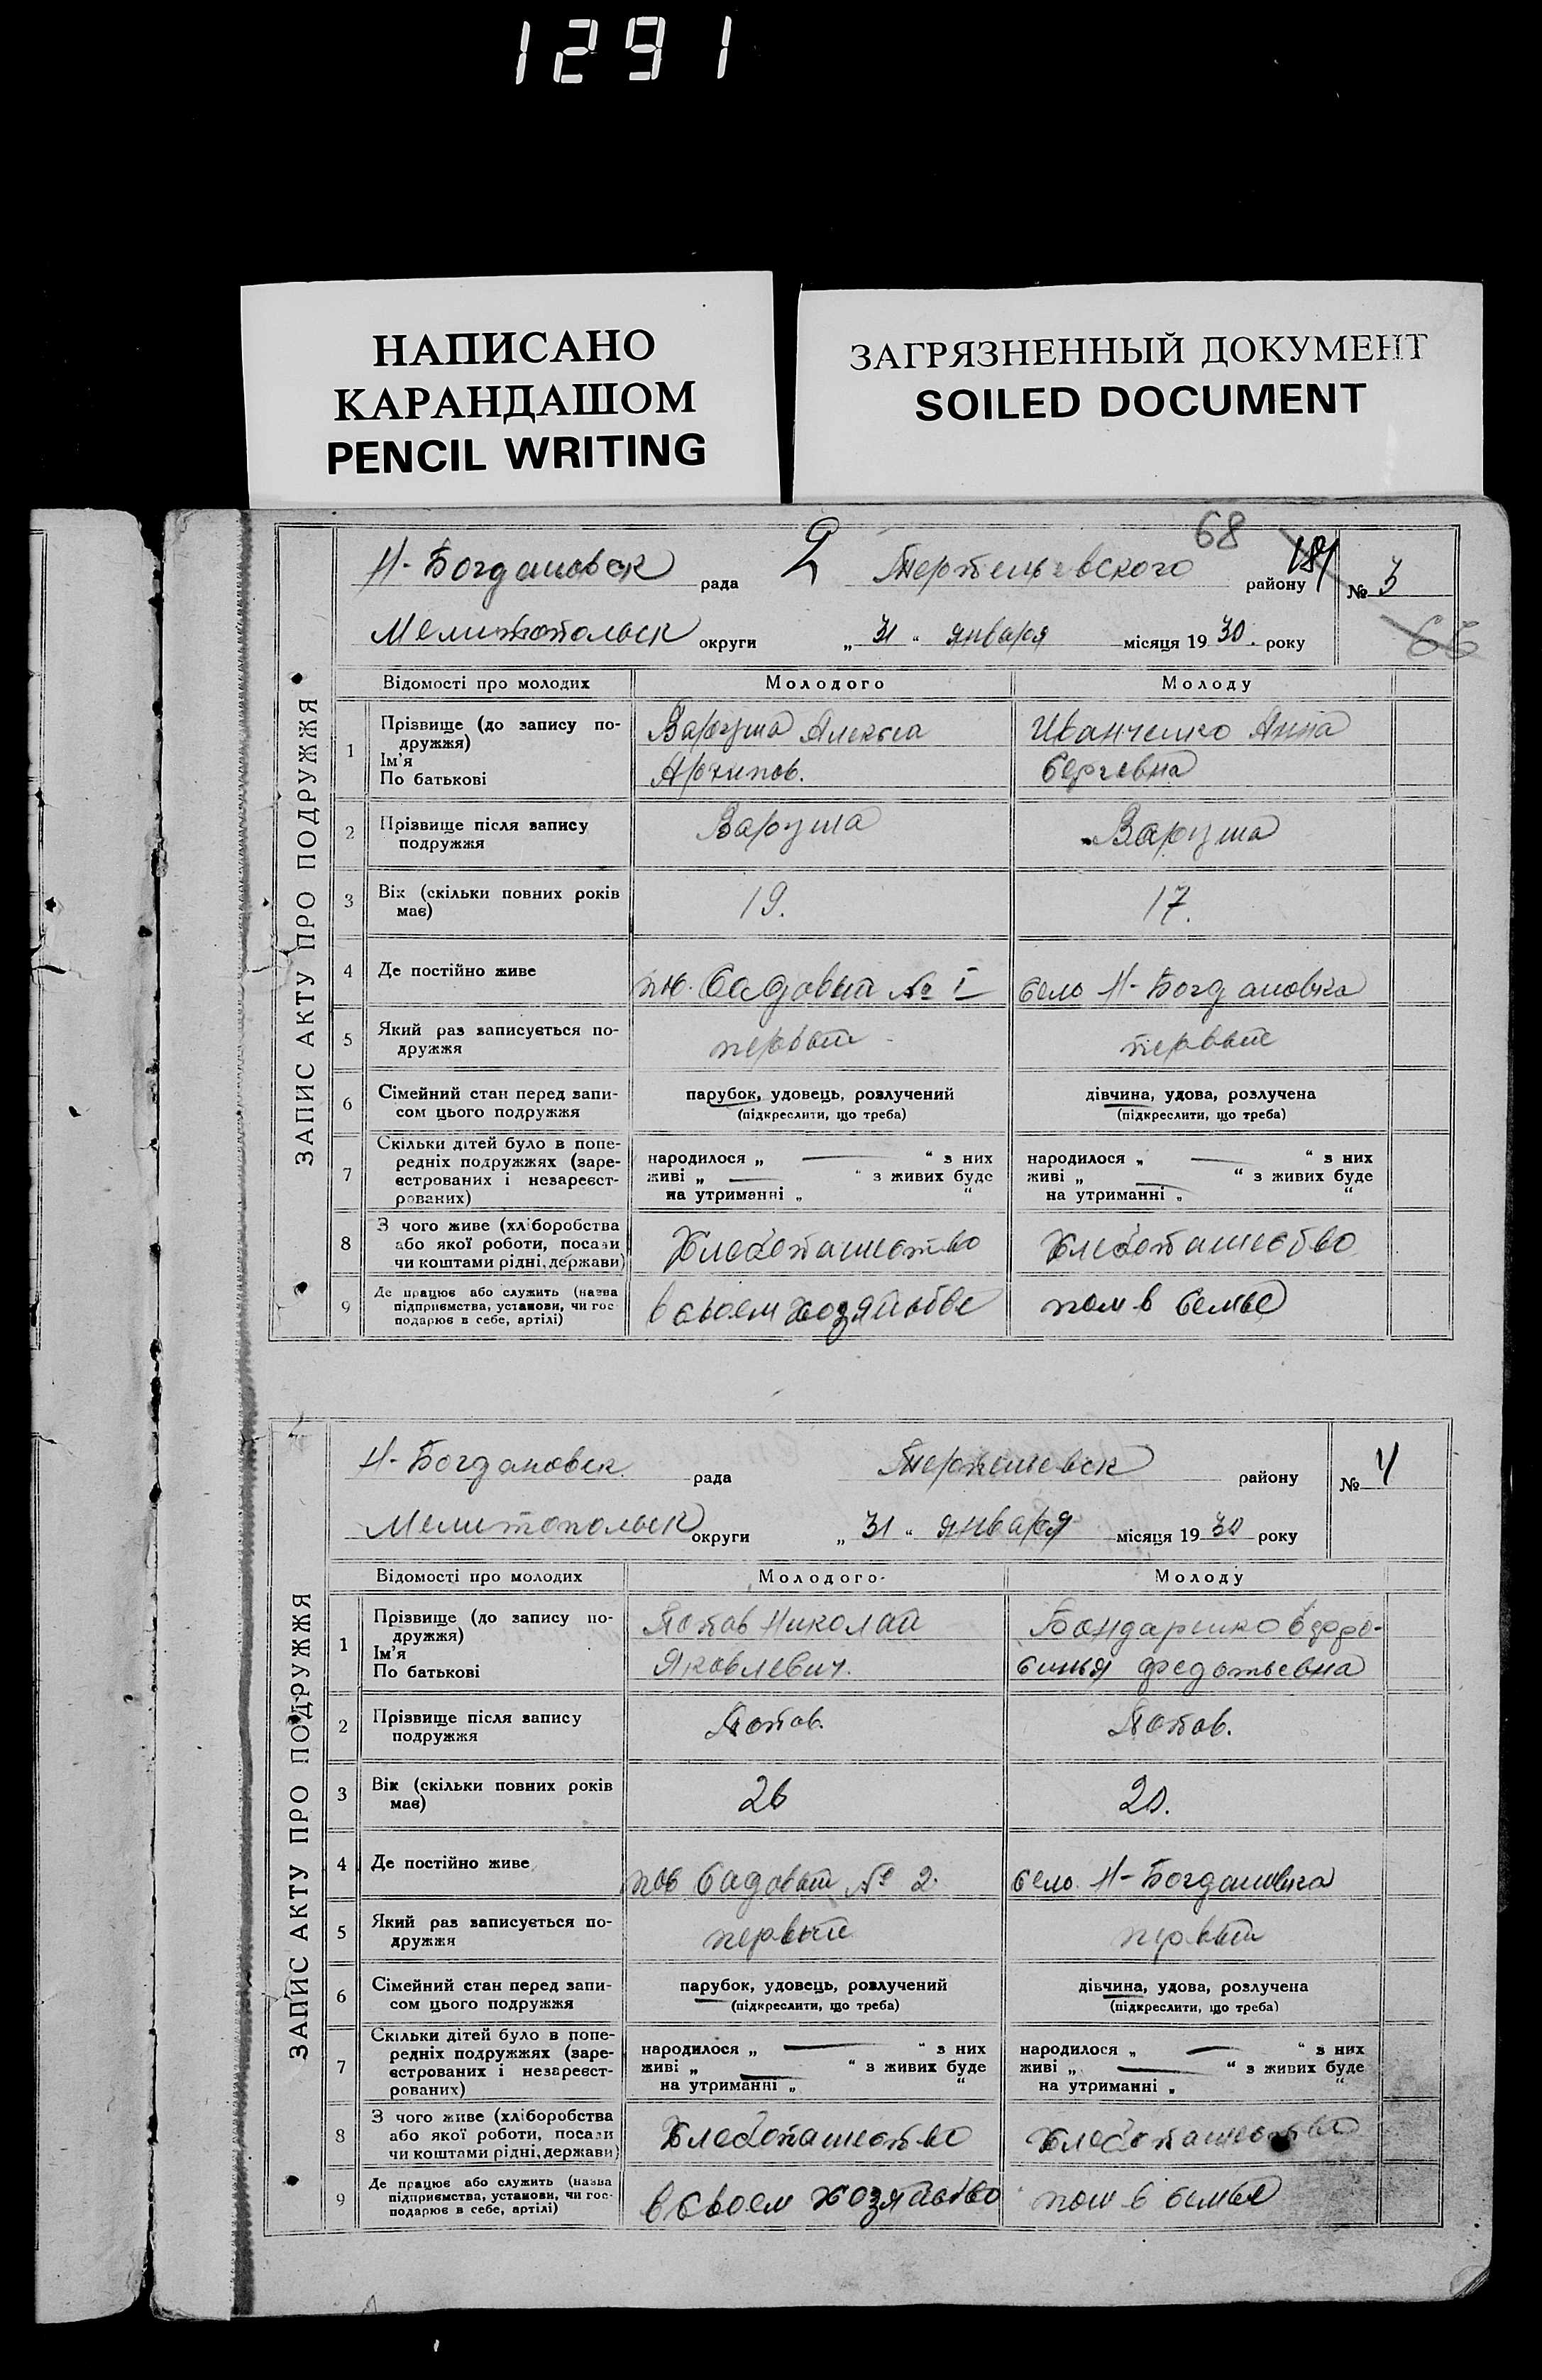 1291
НАПИСАНО
КАРАНДАШОМ
PENCIL WRITING
ЗАГРЯЗНЕННЫЙ ДОКУМЕНТ
SOILED DOCUMENT
68
ЗАПИС АКТУ ПРО ПОДРУЖЖЯ
Н-Богдановск рада 2 району № 3
Мелитопольск округи „ 31 “ января місяця 19 30. року 66
Відомості про молодих Молодого Молоду
1 Прізвище (до запису по-
дружжя)
Ім'я
По батькові
Варуша Алексы
Архипов.
Иванченко Анна
Сергевна
2 Прізвище після запису
подружжя
Варуша Варуша
3 Вік (скільки повних років
має)
19. 17.
4 Де постійно живе Садовый № I село Н-Богдановка
5 Який раз записується по-
дружжя
первый первый
6 Сімейний стан перед запи-
сом цього подружжя
парубок, удовець, розлучений
(підкреслити, що треба)
дівчина, удова, розлучена
(підкреслити, що треба)
7 Скільки дітей було в попе-
редніх подружжях (заре-
єстрованих і незареєст-
рованих)
народилося „ — “ з них
живі „ — “ з живих буде
на утриманні „ “
народилося „ — “ з них
живі „ — “ з живих буде
на утриманні „ “
8 З чого живе (хліборобства
або якої роботи, посади
чи коштами рідні, держави)
Хлебопашество Хлебопашество
9 Де працює або служить (назва
підприємства, установи, чи гос-
подарює в себе, артілі)
в своем хозяйстве пом в семье
ЗАПИС АКТУ ПРО ПОДРУЖЖЯ
Н-Богдановск рада району № 4
Мелитопольск округи „ 31 “ января місяця 19 30 року
Відомості про молодих Молодого Молоду
1 Прізвище (до запису по-
дружжя)
Ім'я
По батькові
Попов Николай
Яковлевич.
Бондаренко
Федотьевна
2 Прізвище після запису
подружжя
Попов. Попов.
3 Вік (скільки повних років
має)
26 20.
4 Де постійно живе пос Садовый № 2. село Н-Богдановка
5 Який раз записується по-
дружжя
первый первый
6 Сімейний стан перед запи-
сом цього подружжя
парубок, удовець, розлучений
(підкреслити, що треба)
дівчина, удова, розлучена
(підкреслити, що треба)
7 Скільки дітей було в попе-
редніх подружжях (заре-
єстрованих і незареєст-
рованих)
народилося „ — “ з них
живі „ “ з живих буде
на утриманні „ “
народилося „ — “ з них
живі „ — “ з живих буде
на утриманні „ “
8 З чого живе (хліборобства
або якої роботи, посади
чи коштами рідні, держави)
Хлебопашество Хлебопашество
9 Де працює або служить (назва
підприємства, установи, чи гос-
подарює в себе, артілі)
в своем хозяйство пом в семье